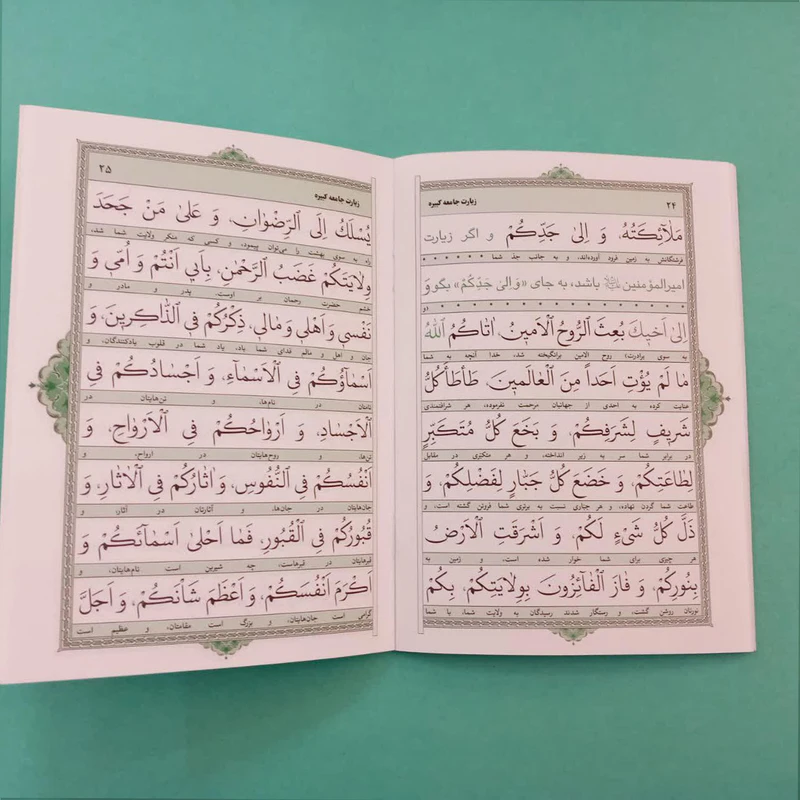 ۲۴
زیارت جامعه کبیره
مَلآئِکَتُهُ، وَ اِلیٰ جَدِّکُمْ و اگر زیارت
فرشتگانش به زمین فرود آورده‌اند، و به جانب جدّ شما
امیرالمؤمنین باشد، به جای «وَ اِلیٰ جَدِّکُمْ» بگو وَ
(و
اِلیٰ اَخیٖکَ بُعِثَ الرُّوحُ الْاَمینُ، اٰتاکُمُ اللّٰهُ
به سوی برادرت) روح الامین برانگیخته شد، خدا آنچه به شما
مٰا لَمْ یُؤْتِ اَحَداً مِنَ الْعٰالَمینَ، طَأطَأَ کُلُّ
عنایت کرده به احدی از جهانیان مرحمت نفرموده، هر شرافتمندی
شَریفٍ لِشَرَفِکُمْ، وَ بَخَعَ کُلُّ مُتَکَبِّرٍ
در برابر شما سر به زیر انداخته، و هر متکبّری در مقابل
لِطاعَتِکُمْ، وَ خَضَعَ کُلُّ جَبّٰارٍ لِفَضْلِکُمْ، وَ
طاعت شما گردن نهاده، و هر جبّاری نسبت به برتری شما فروتن گشته است، و
ذَلَّ کُلُّ شَیْءٍ لَکُمْ، وَ اَشْرَقَتِ الْاَرْضُ
هر چیزی برای شما خوار شده است، و زمین به
بِنُورِکُمْ، وَ فٰازَ الْفٰائِزُونَ بِوِلٰایَتِکُمْ، بِکُمْ
نورتان روشن گشت، و رستگار شدند رسیدگان به ولایت شما، با شما
۲۵
زیارت جامعه کبیره
یُسْلَکُ اِلَی الرِّضْوٰانِ، وَ عَلیٰ مَنْ جَحَدَ
راه به سوی بهشت را می‌توان پیمود، و کسی که منکر ولایت شما شد،
وِلٰایَتَکُمْ غَضَبُ الرَّحْمٰنِ، بِاَبی اَنْتُمْ وَ اُمّی وَ
خشم حضرت رحمان بر اوست، پدر و مادر و
نَفْسی وَ اَهْلی وَ مٰالی، ذِکْرُکُمْ فِی الذّٰاکِرینَ، وَ
جان و اهل و مالم فدای شما باد، یاد شما در قلوب یادکنندگان، و
اَسْمٰاؤُکُمْ فِی الْاَسْمٰاءِ، وَ اَجْسٰادُکُمْ فِی
نامتان در نام‌ها، و تن‌هایتان در
الْاَجْسٰادِ، وَ اَرْوٰاحُکُمْ فِی الْاَرْوٰاحِ، وَ
تن‌ها، و روح‌هایتان در ارواح، و
اَنْفُسُکُمْ فِی النُّفُوسِ، وَ اٰثٰارُکُمْ فِی الْاٰثٰارِ، وَ
جان‌هایتان در جان‌ها، و آثارتان در آثار، و
قُبُورُکُمْ فِی الْقُبُورِ، فَمٰا اَحْلیٰ اَسْمٰآئَکُمْ وَ
قبرهایتان در قبرهاست، چه شیرین است نام‌هایتان، و
اَکْرَمَ اَنْفُسَکُمْ، وَ اَعْظَمَ شَأنَکُمْ، وَ اَجَلَّ
گرامی است جان‌هایتان، و بزرگ است مقامتان، و عظیم است